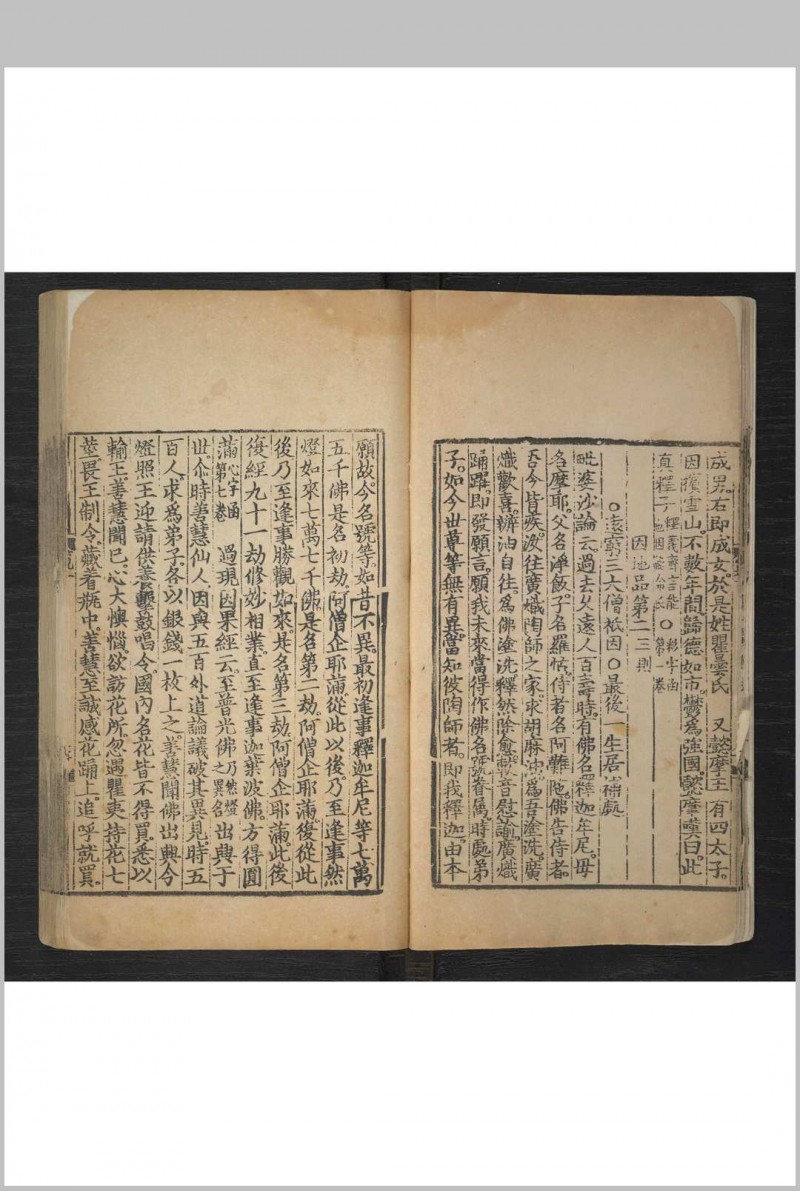 成男右即成女於是姓瞿曇氏　又懿摩王有四太子。
因擯雪山。不數年間。歸德如市。鬱爲強國。懿摩嘆曰。此
真釋子 第一卷
因地品第二三則
○遠窮三大僧祇因○最後一生居補處
毗婆沙論云。過去久遠人百壽時。有佛名釋迦牟尼。母
名摩耶。父名淨飯。子名羅怙。侍者名阿難陀。佛告侍者。
吾今背疾。汝往廣熾陶師之家。求胡麻油。爲吾塗洗。廣
熾歡喜。辦油自往。爲佛塗洗。釋然除愈。軟音慰諭。廣熾
踊躍。即發願言。願我未來當得作佛。名號眷屬。時處弟
子。如今世尊等無有異。當知彼陶師者。即我釋迦。由本
願故。今名號等。如昔不異。最初逢事釋迦牟尼等七萬
五千佛。是名初劫。阿僧企耶滿。從此以後。乃至逢事然
燈如來七萬七千佛。是名第二劫。阿僧企耶滿。復從此
後乃至逢事勝觀如來。是名第三劫。阿僧企耶滿。此後
復經九十一劫。修妙相業。直至逢事迦葉波佛。方得圓
滿 心字函第七卷　過現因果經云。至普光佛 乃然燈之異名 出興于
世。尒時善慧仙人。因與五百外道論議。破其異見。時五
百人。求爲弟子。各以銀錢一枚上之。善慧聞佛出興。今
燈照王迎請供養。擊鼓唱令。國內名花。皆不得買。悉以
輸王。善慧聞已。心大懊惱。欲訪花所。忽遇瞿夷持花七
莖。畏王制令。藏着瓶中。善慧至誠。感花踊上。追呼就買。